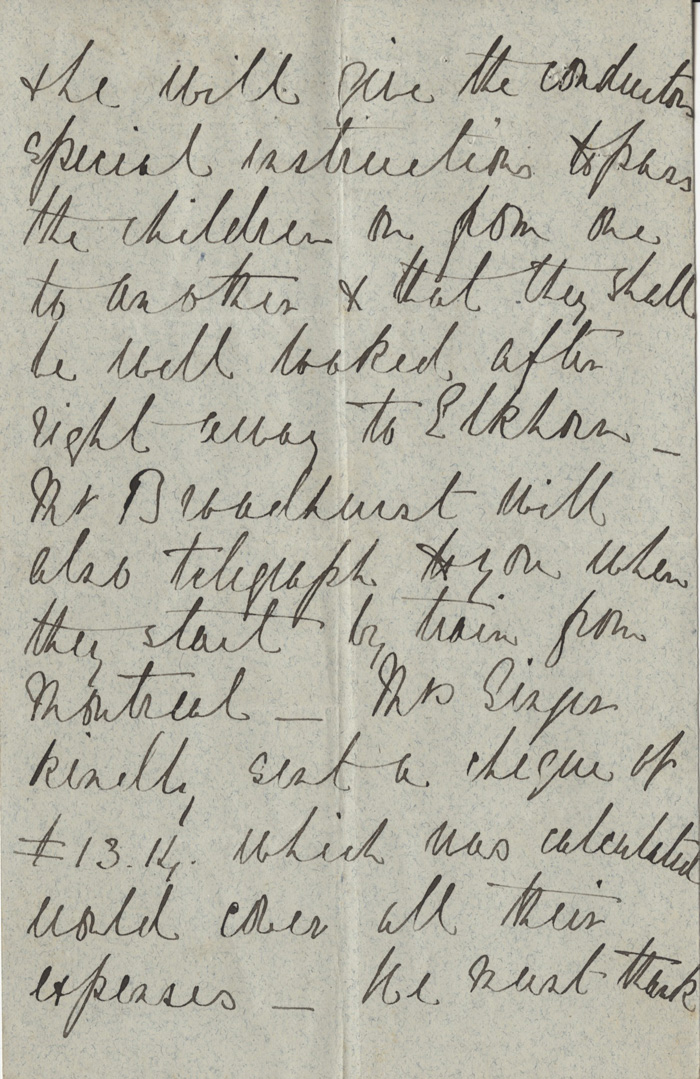 & he will give the conductors
special instructions to pass
the children on from one
to another & that they shall
be well looked after
right away to Elkhorn _
Mr Broadhurst will
also telegraph to you when
they start by train from
Montreal _ Mrs
kindly sent a cheque of
£13.14. which was calculated
would cover all their
expenses _ We must thank